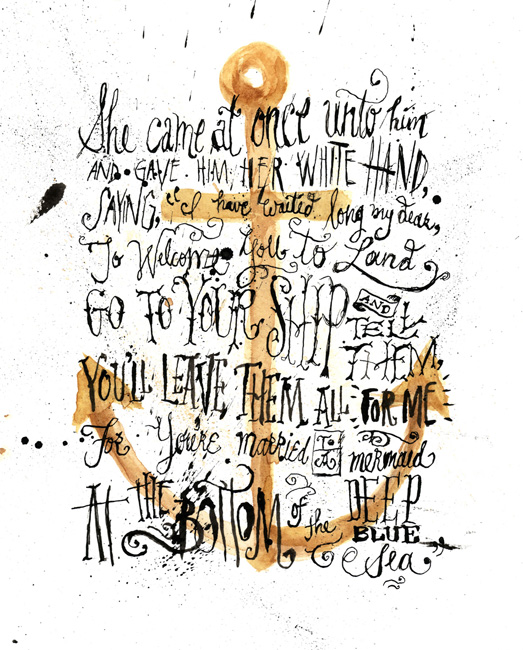 She came at once unto him
AND GAVE HIM HER WHITE HAND,
SAYING, "I have waited long my dear,
To Welcome you to Land
GO TO YOUR SHIP AND TELL THEM,
YOU'LL LEAVE THEM ALL FOR ME
For You're MARRIED TO A mermaid
At THE BOTTOM of the DEEP BLUE Sea"